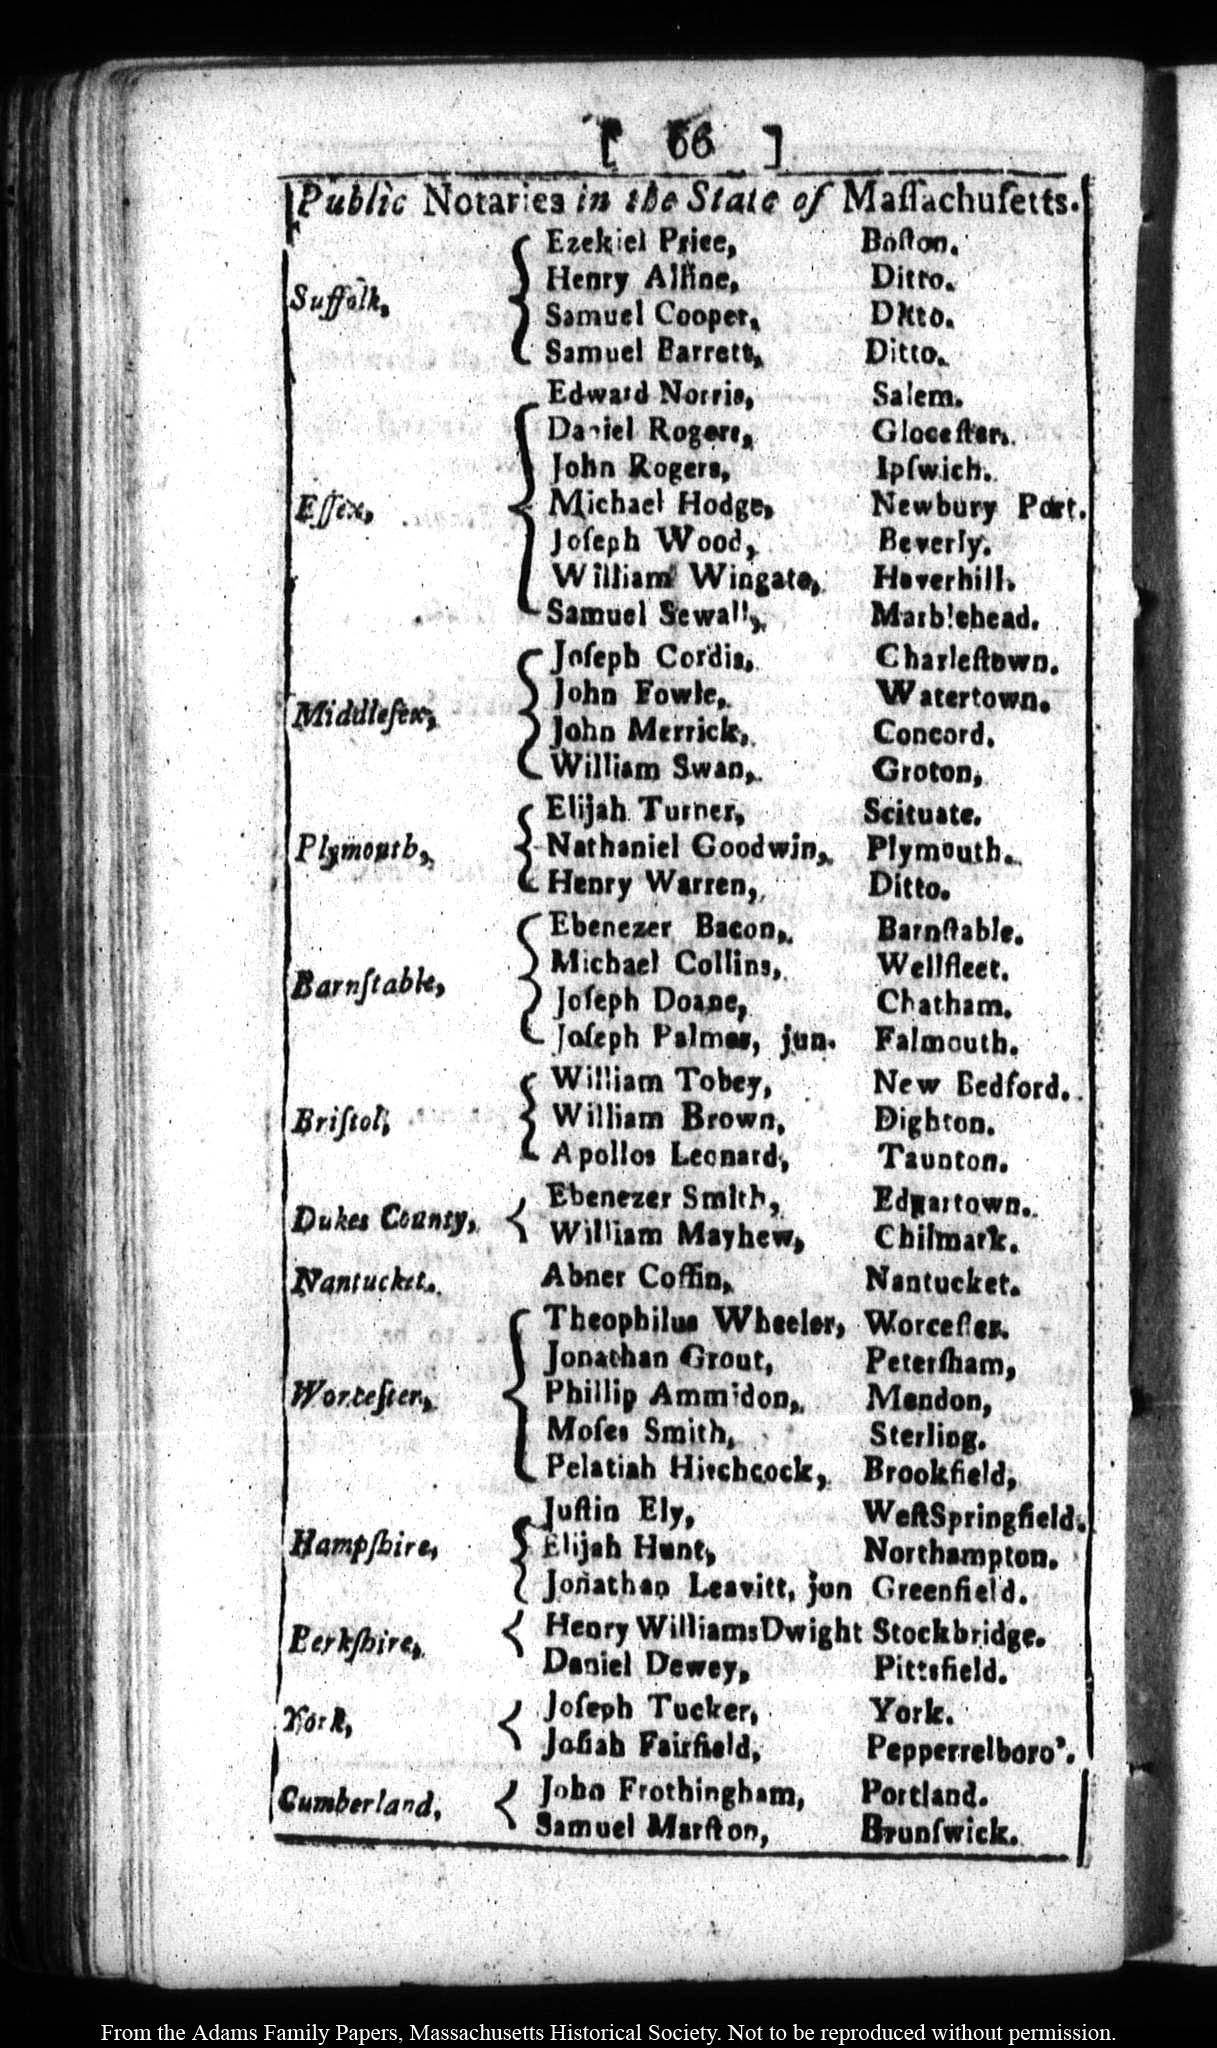 [ 66 ]
Public Notaries in the State of Maſſachuſetts.
Suffolk, Ezekiel Price, Boſton.
Henry Alline, Ditto.
Samuel Cooper, Ditto.
Samuel Barrett, Ditto.
Eſſex, Edward Norris, Salem.
Daniel Rogers, Gloceſter.
John Rogers, Ipſwich.
Michael Hodge, Newbury Port.
Joſeph Wood, Beverly.
William Wingate, Haverhill.
Samuel Sewall, Marblehead.
Middleſex, Joſeph Cordis, Charleſtown.
John Fowle, Watertown.
John Merrick, Concord.
William Swan, Groton,
Plymouth, Elijah Turner, Scituate.
Nathaniel Goodwin, Plymouth.
Henry Warren, Ditto.
Barnſtable, Ebenezer Bacon, Barnſtable.
Michael Collins, Wellfleet.
Joſeph Doane, Chatham.
Joſeph Palmer, jun. Falmouth.
Briſtol, William Tobey, New Bedford.
William Brown, Dighton.
Apollos Leonard, Taunton.
Dukes County, Ebenezer Smith, Edgartown.
William Mayhew, Chilmark.
Nantucket. Abner Coffin, Nantucket.
Worceſter, Theophilus Wheeler, Worceſter.
Jonathan Grout, Peterſham,
Phillip Ammidon, Mendon,
Moſes Smith, Sterling.
Pelatiah Hitchcock, Brookfield,
Hampſhire, Juſtin Ely, WeſtSpringfield.
Elijah Hunt, Northampton.
Jonathan Leavitt, jun Greenfield.
Berkſhire, Henry WilliamsDwight Stockbridge.
Daniel Dewey, Pittsfield.
York, Joſeph Tucker, York.
Joſiah Fairfield, Pepperrelboro'.
Cumberland, John Frothingham, Portland.
Samuel Marſton, Brunſwick.
From the Adams Family Papers, Massachusetts Historical Society. Not to be reproduced without permission.